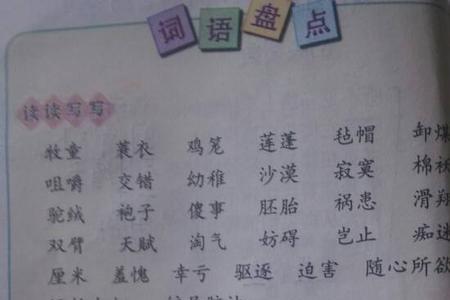 词语盘点
读读写写
牧童 蓑衣 鸡笼 莲蓬 毡帽 卸煤
咀嚼 交错 幼稚 沙漠 寂寞 棉袄
驼绒 袍子 傻事 胚胎 祸患 滑翔
双臂 天赋 淘气 妨碍 岂止 痴迷
厘米 羞愧 幸亏 驱逐 迫害 随心所欲